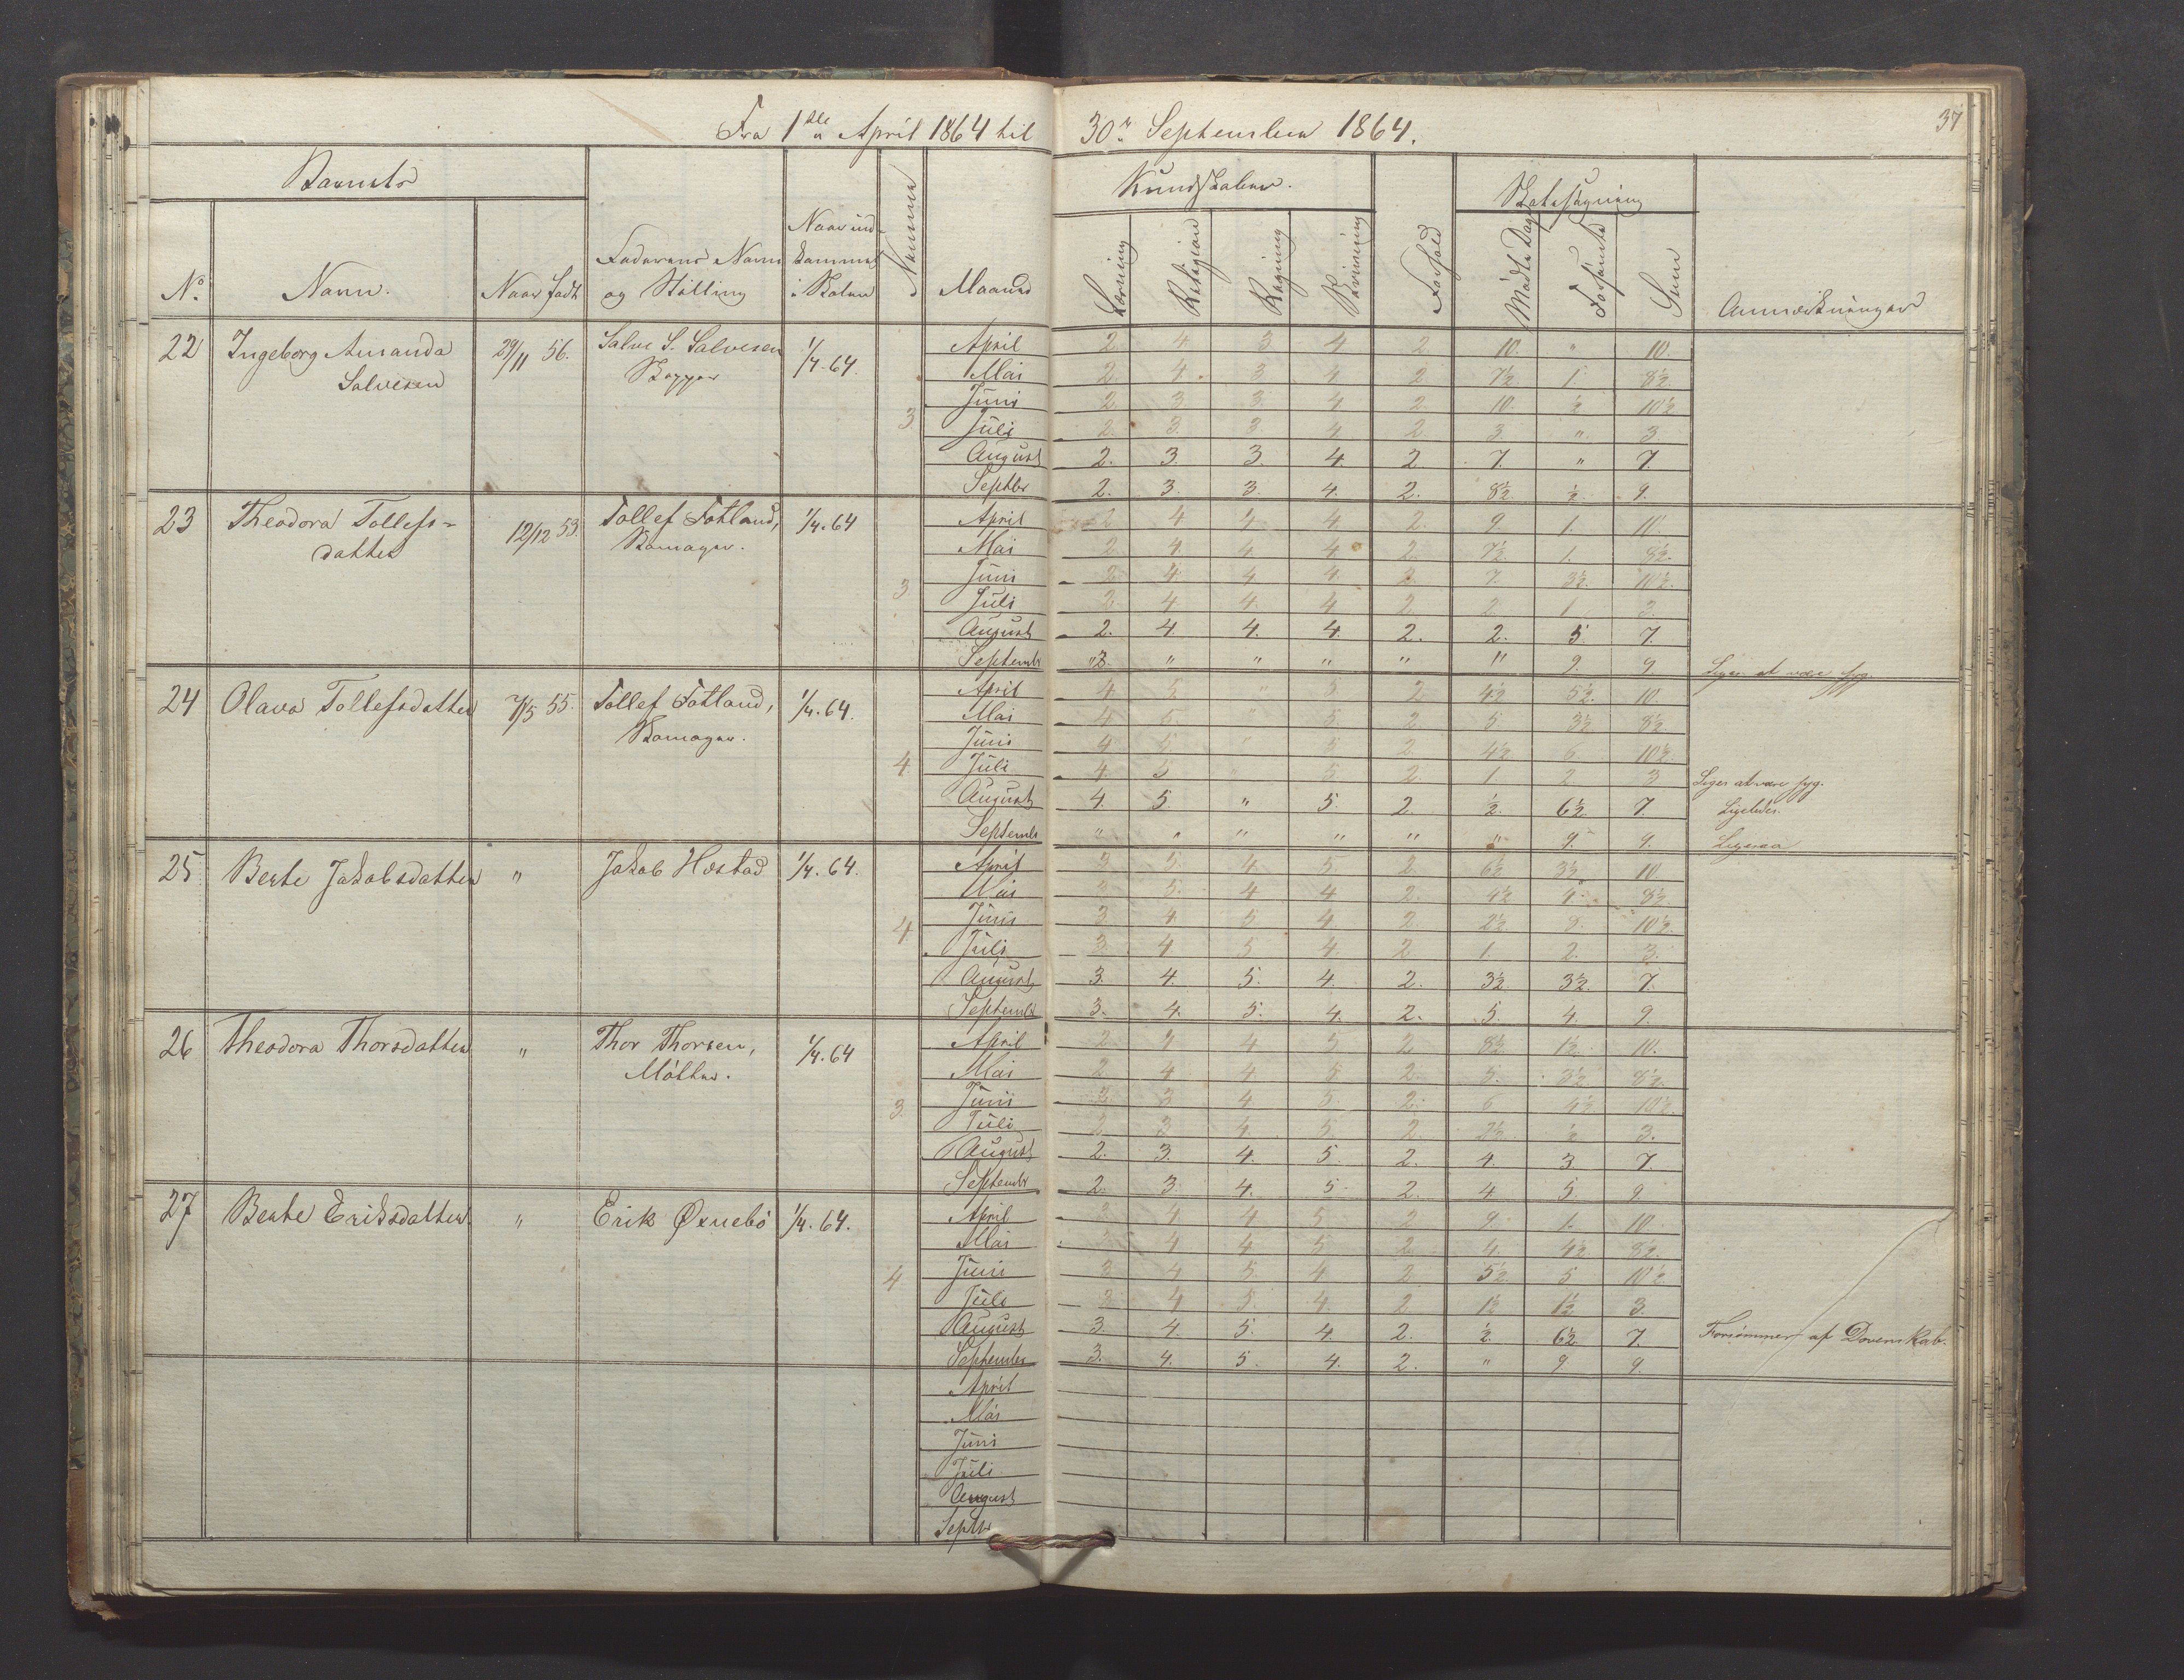 Fra 1ste April 1864 til 30te September 1864.
37
Barnets
Kundskaber.
Skolesøgning
No. Navn. Naar født Faderens Navn og Stilling Naar ind-kommen i Skolen Nummer Maaned Læsning Religion Regning Skrivning Forhold Mødte Dage Forsømte Sum Anmærkninger
22 Ingeborg Amanda 29/11 56. Salve S. Salvesen 1/4.64. April 2. 4 3 4 2. 10. " 10.
Salvesen Mai 2. 4. 3 4 2 7½ 1. 8½.
Juni 2 3 3. 4 2. 10. ½ 10½
3. Juli 2. 3. 3. 4 2. 3. " 3
August 2. 3. 3. 4. 2. 7. " 7.
Septbr 2. 3. 3. 4. 2. 8½ ½. 9.
23 Theodora Tollefs- 12/12 53. Tollef Fotland, 1/4.64 April 2 4 4. 4. 2. 9. 1. 10.
datter Skomager. Mai 2. 4. 4. 4 2. 7½ 1. 8½.
3 Juni 2 4 4 4. 2. 7. 3½. 10½.
Juli 2. 4 4. 4 2 2. 1 3.
August 2. 4. 4. 4. 2. 2. 5 7.
Septembr " " " " " " 9. 9 Siges at være syg.
24 Olava Tollefsdatter 7/5 55. Tollef Fotland, 1/4.64. April 4 5 " 5 2 4½ 5½. 10.
Skomager. Mai 4 5. " 5. 2. 5. 3½ 8½.
Juni 4 5 " 5 2 4½ 6 10½
4. Juli 4. 5 " 5. 2. 1 2 3 Siges at være syg.
August 4. 5. " 5. 2. ½. 6½. 7. Ligeledes.
Septembr " " " " " " 9. 9. Ligesaa
25 Berte Jakobsdatter " Jakob Hostad 1/4.64. April 3 5 4 5. 2. 6½ 3½ 10.
Mai 3 5. 4 4 2. 4½ 4 8½
4 Juni 3. 4. 5 4. 2. 2½ 8. 10½.
Juli 3. 4 5 4. 2 1. 2. 3.
August 3. 4. 5. 4. 2. 3½ 3½. 7.
Septembr 3. 4. 5. 4. 2. 5. 4. 9.
26 Theodora Thorsdatter " Thor Thorsen, 1/4.64 April 2 4 4 5 2 8½ 1½. 10.
Møller. Mai 2. 4 4 5 2. 5. 3½ 8½.
3 Juni 2 3 4 5. 2. 6 4½ 10½.
Juli 2 3 4. 5. 2. 2½ ½ 3.
August 2. 3. 4. 5. 2. 4. 3 7.
Septembr 2. 3. 4. 5. 2. 4 5 9.
27 Berte Eriksdatter " Erik Øxnebø 1/4.64. April 3 4 4 5 2 9 1. 10.
Mai 3 4 4 5 2 4. 4½ 8½.
4 Juni 3 4 5 4 2. 5½ 5 10½
Juli 3 4 5. 4. 2. 1½ 1½ 3.
August 3. 4. 5. 4. 2. ½. 6½ 7. Forsømmer af Dovenskab.
September 3. 4. 5. 4. 2. " 9. 9.
April
Mai
Juni
Juli
August
Septbr